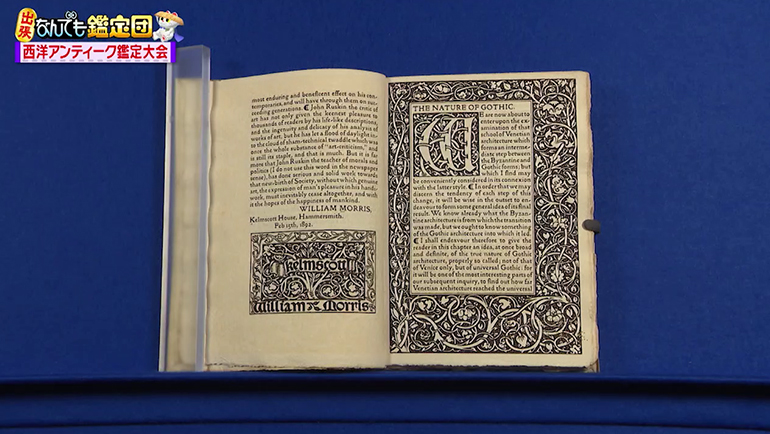 出張
なんでも鑑定団
西洋アンティーク鑑定大会
most enduring and beneficent effect on his con-
temporaries, and will have through them on suc-
ceeding generations. John Ruskin the critic of
art has not only given the keenest pleasure to
thousands of readers by his life-like descriptions,
and the ingenuity and delicacy of his analysis of
works of art, but he has let a flood of daylight into
the cloud of sham-technical twaddle which was
once the whole substance of "art-criticism," and
is still its staple, and that is much. But it is far
more that John Ruskin the teacher of morals and
politics (I do not use this word in the newspaper
sense), has done serious and solid work towards
that new-birth of Society, without which genuine
art, the expression of man's pleasure in his handi-
work, must inevitably cease altogether, and with
it the hopes of the happiness of mankind.
WILLIAM MORRIS,
Kelmscott House, Hammersmith.
Feb 15th, 1892.
Kelmscott
William Morris
THE NATURE OF GOTHIC.
WE are now about to
enter upon the ex-
amination of that
school of Venetian
architecture which
forms an interme-
diate step between
the Byzantine and
Gothic forms; but
which I find may
be conveniently considered in its connexion
with the latter style. In order that we may
discern the tendency of each step of this
change, it will be wise in the outset to en-
deavour to form some general idea of its final
result. We know already what the Byzan-
tine architecture is from which the transition
was made, but we ought to know something
of the Gothic architecture into which it led.
I shall endeavour therefore to give the
reader in this chapter an idea, at once broad
and definite, of the true nature of Gothic
architecture, properly so called; not of that
of Venice only, but of universal Gothic: for
it will be one of the most interesting parts of
our subsequent inquiry, to find out how far
Venetian architecture reached the universal